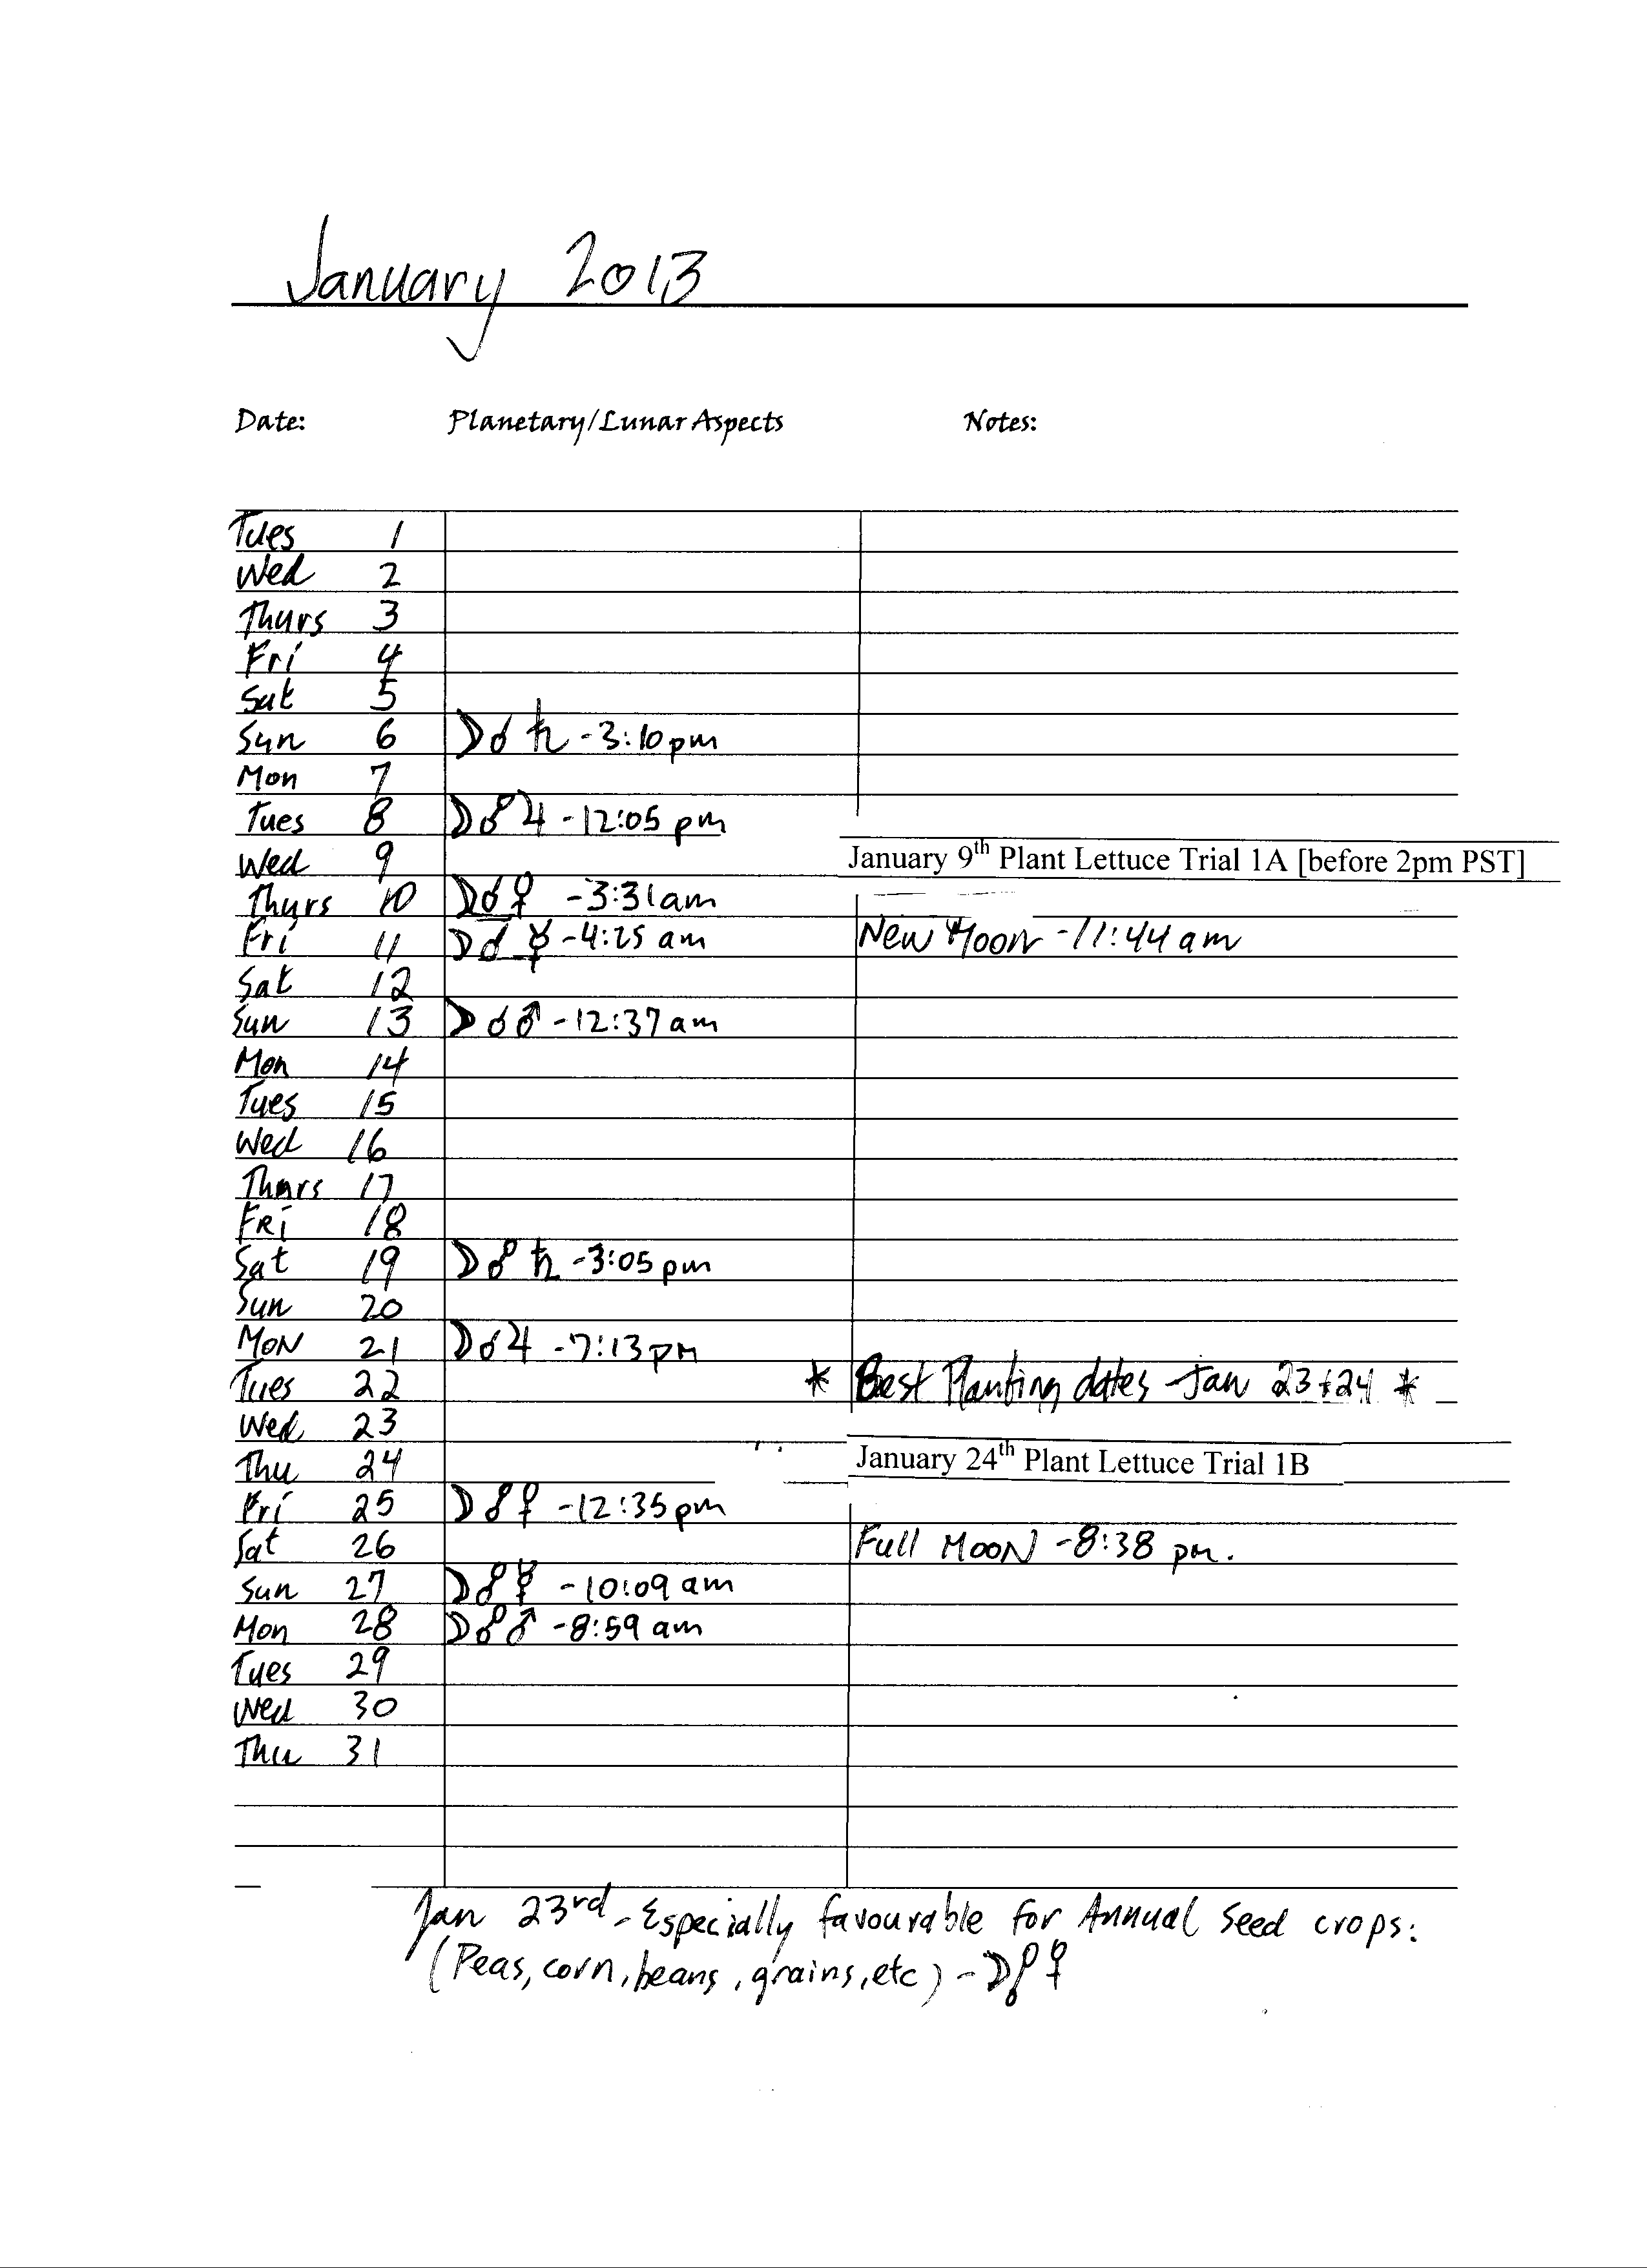 January 2013
Date: Planetary/Lunar Aspects Notes:
Tues 1
Wed 2
Thurs 3
Fri 4
Sat 5
Sun 6 ☽☌♄ - 3:10 pm
Mon 7
Tues 8 ☽☍♃ - 12:05 pm
Wed 9 January 9th Plant Lettuce Trial 1A [before 2pm PST]
Thurs 10 ☽☌♀ - 3:31 am
Fri 11 ☽☌☿ - 4:25 am New Moon - 11:44 am
Sat 12
Sun 13 ☽☌♂ - 12:37 am
Mon 14
Tues 15
Wed 16
Thurs 17
FRi 18
Sat 19 ☽☍♄ - 3:05 pm
Sun 20
MON 21 ☽☌♃ - 7:13 pm
Tues 22 * Best Planting dates - Jan 23+24 *
Wed 23
Thu 24 January 24th Plant Lettuce Trial 1B
Fri 25 ☽☍♀ - 12:35 pm
Sat 26 Full MooN - 8:38 pm.
Sun 27 ☽☍☿ - 10:09 am
Mon 28 ☽☍♂ - 8:59 am
Tues 29
Wed 30
Thu 31
Jan 23rd - Especially favourable for Annual Seed crops:
(Peas, corn, beans, grains, etc) - ☽☍♀